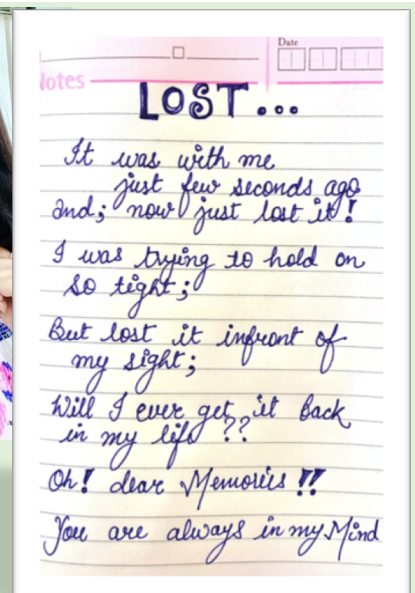 Date
Notes
LOST...
It was with me
just few seconds ago
and; now just lost it!
I was trying to hold on
so tight;
But lost it infront of
my sight;
Will I ever get it back
in my life ??
Oh! dear Memories !!
You are always in my Mind